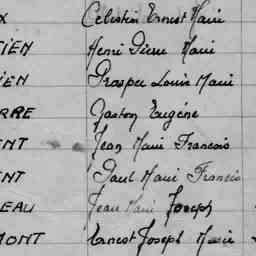 X Celestin Ernest Marie
CIEN Henri Pierre Marie
IEN Prosper Louis Marie
RRE Gaston Eugéne
ENT Jean Marie Francois
ENT Paul Marie Francis
EAU Jean Marie Joseph
MONT Ernest Joseph Marie